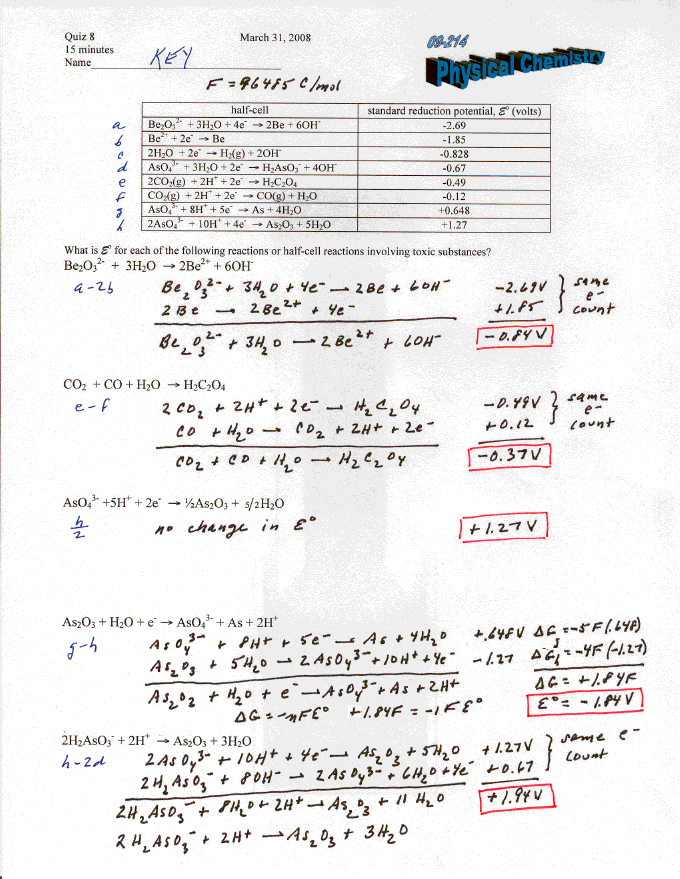 Quiz 8 March 31, 2008 09-214
15 minutes Physical Chemistry
Name KEY
F = 96485 C/mol
half-cell standard reduction potential, ℰ° (volts)
a Be₂O₃²⁻ + 3H₂O + 4e⁻ → 2Be + 6OH⁻ -2.69
b Be²⁺ + 2e⁻ → Be -1.85
c 2H₂O + 2e⁻ → H₂(g) + 2OH⁻ -0.828
d AsO₄³⁻ + 3H₂O + 2e⁻ → H₂AsO₃⁻ + 4OH⁻ -0.67
e 2CO₂(g) + 2H⁺ + 2e⁻ → H₂C₂O₄ -0.49
f CO₂(g) + 2H⁺ + 2e⁻ → CO(g) + H₂O -0.12
g AsO₄³⁻ + 8H⁺ + 5e⁻ → As + 4H₂O +0.648
h 2AsO₄³⁻ + 10H⁺ + 4e⁻ → As₂O₃ + 5H₂O +1.27
What is ℰ° for each of the following reactions or half-cell reactions involving toxic substances?
Be₂O₃²⁻ + 3H₂O → 2Be²⁺ + 6OH⁻
a-2b Be₂O₃²⁻ + 3H₂O + 4e⁻ → 2Be + 6OH⁻ -2.69V } same
2Be → 2Be²⁺ + 4e⁻ +1.85 e⁻
Be₂O₃²⁻ + 3H₂O → 2Be²⁺ + 6OH⁻ -0.84V count
CO₂ + CO + H₂O → H₂C₂O₄
e-f 2CO₂ + 2H⁺ + 2e⁻ → H₂C₂O₄ -0.49V } same
CO + H₂O → CO₂ + 2H⁺ + 2e⁻ +0.12 e⁻
CO₂ + CO + H₂O → H₂C₂O₄ -0.37V count
AsO₄³⁻ +5H⁺ + 2e⁻ → ½As₂O₃ + 5/2H₂O
h/2 no change in ε° +1.27V
As₂O₃ + H₂O + e⁻ → AsO₄³⁻ + As + 2H⁺
g-h AsO₄³⁻ + 8H⁺ + 5e⁻ → As + 4H₂O +.648V ΔG = -5F(.648)
As₂O₃ + 5H₂O → 2AsO₄³⁻ + 10H⁺ + 4e⁻ -1.27 ΔG = -4F(-1.27)
As₂O₂ + H₂O + e⁻ → AsO₄³⁻ + As + 2H⁺ ΔG = +1.84F
ΔG = -nFE° +1.84F = -1FE° ε° = -1.84V
2H₂AsO₃⁻ + 2H⁺ → As₂O₃ + 3H₂O
h-2d 2AsO₄³⁻ + 10H⁺ + 4e⁻ → As₂O₃ + 5H₂O +1.27V } same e⁻
2H₂AsO₃⁻ + 8OH⁻ → 2AsO₄³⁻ + 6H₂O + 4e⁻ +0.67 count
2H₂AsO₃⁻ + 8H₂O + 2H⁺ → As₂O₃ + 11H₂O +1.94V
2H₂AsO₃⁻ + 2H⁺ → As₂O₃ + 3H₂O